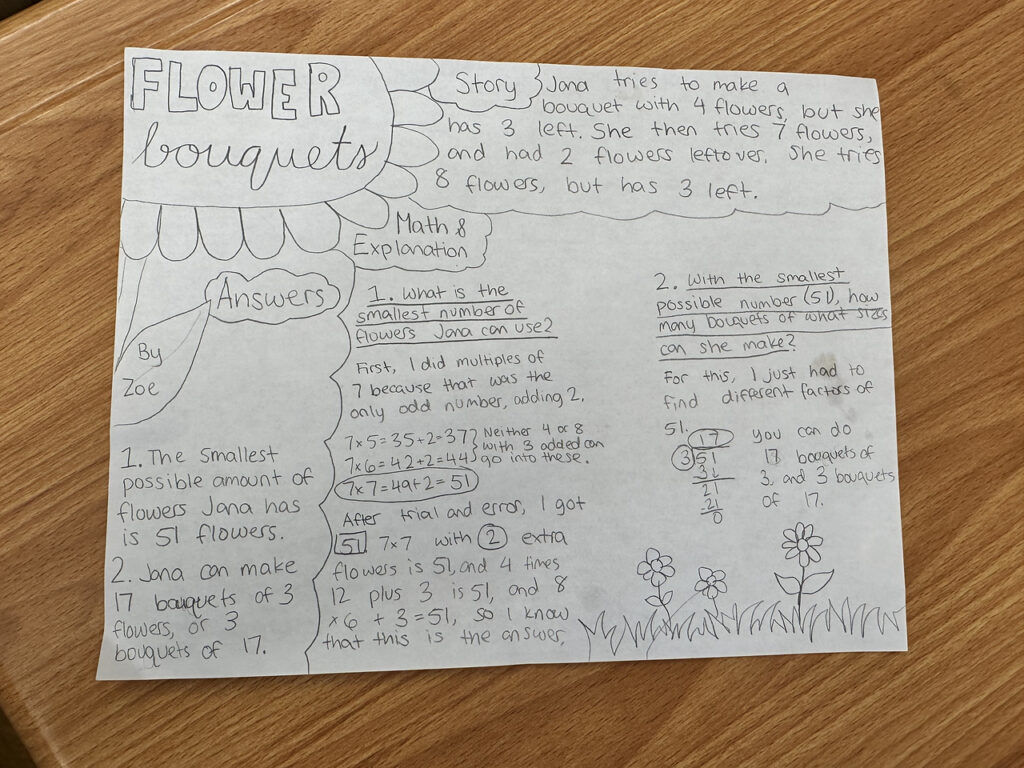 FLOWER
bouquets
Story
Jana tries to make a
bouquet with 4 flowers, but she
has 3 left. She then tries 7 flowers,
and had 2 flowers leftover. She tries
8 flowers, but has 3 left.
By
Zoe
Answers
1. The smallest
possible amount of
flowers Jana has
is 51 flowers.
2. Jana can make
17 bouquets of 3
flowers, or 3
bouquets of 17.
Math &
Explanation
1. What is the
smallest number of
flowers Jana can use?
First, I did multiples of
7 because that was the
only odd number, adding 2.
7×5=35+2=37
7×6=42+2=44
Neither 4 or 8
with 3 added can
go into these.
7×7=49+2=51
After trial and error, I got
51 7×7 with 2 extra
flowers is 51, and 4 times
12 plus 3 is 51, and 8
×6 + 3=51, so I know
that this is the answer.
2. With the smallest
possible number (51), how
many bouquets of what sizes
can she make?
For this, I just had to
find different factors of
51.
17
3 51
3↓
21
-21
0
you can do
17 bouquets of
3, and 3 bouquets
of 17.